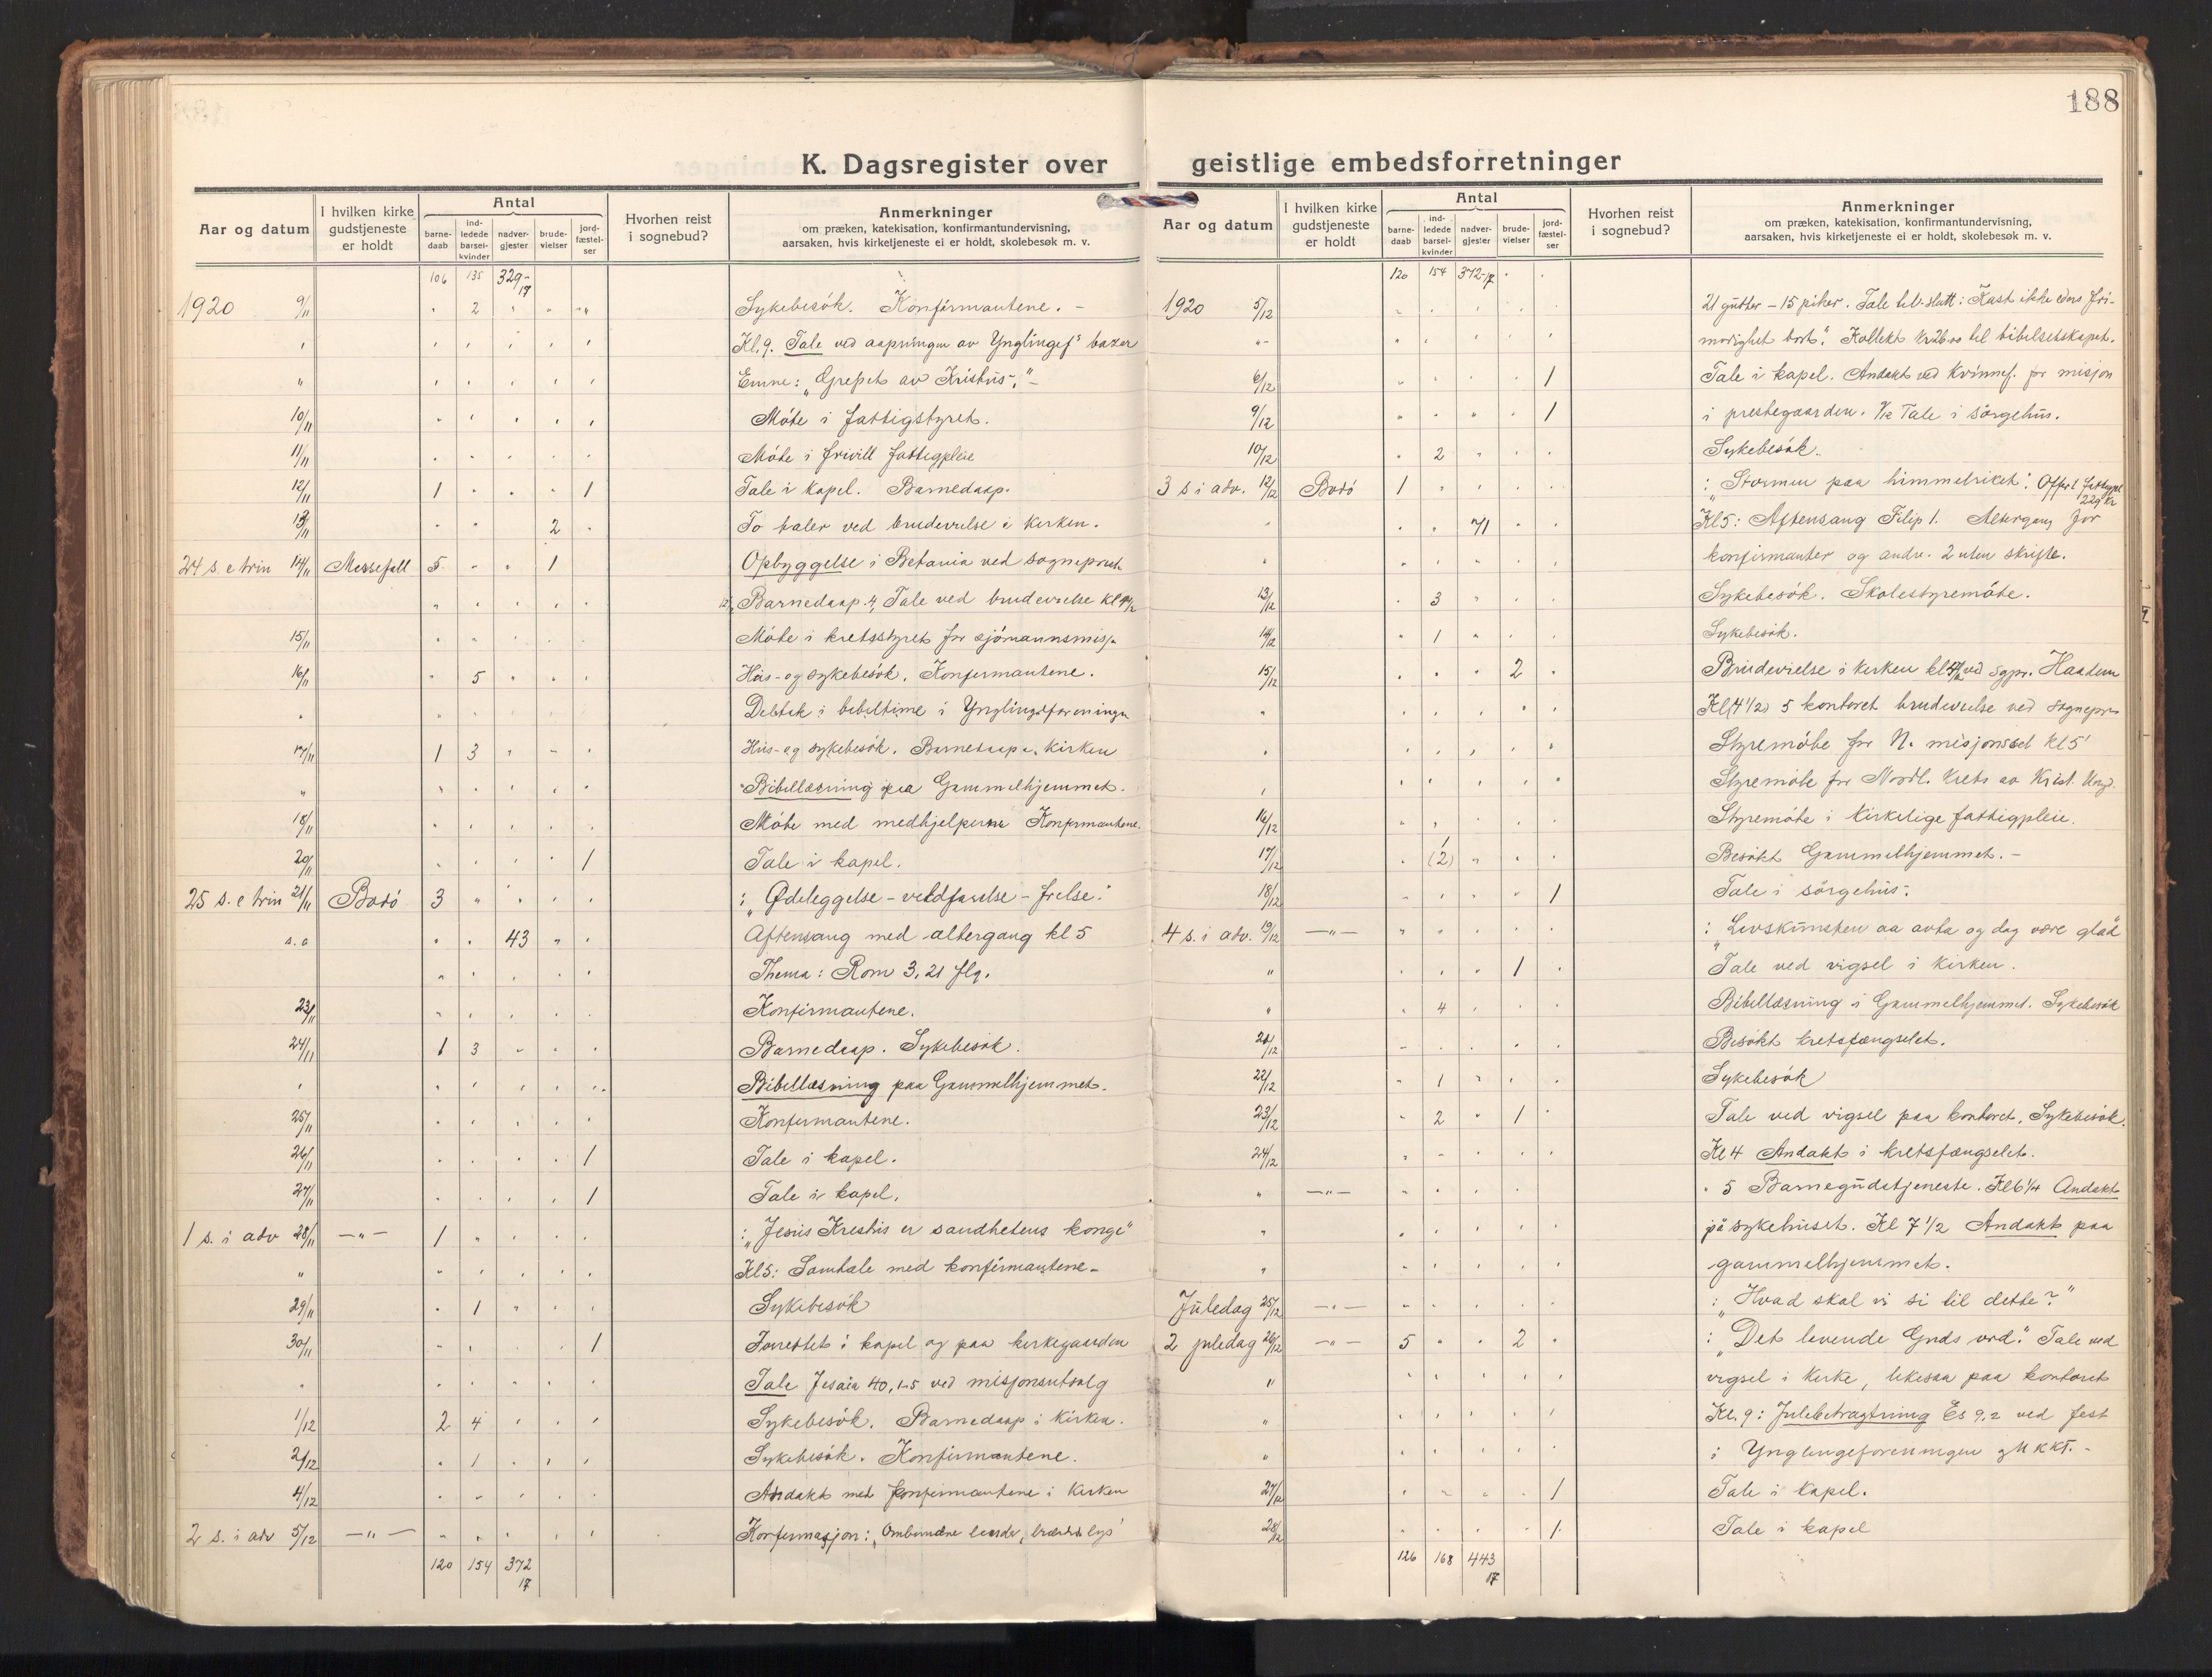 188
K. Dagsregister over geistlige embedsforretninger
Aar og datum | I hvilken kirke gudstjeneste er holdt | Antal | barnedaab | indledede barselkvinder | nadvergjester | brudevielser | jordfæstelser | Hvorhen reist i sognebud? | Anmerkninger om præken, katekisation, konfirmantundervisning, aarsaken, hvis kirketjeneste ei er holdt, skolebesøk m. v.
106 135 329-17
1920 9/11 2 Sykebesök. Konfirmantene. -
Kl. 9. Tale ved aapningen av Ynglingef's bazar
Emne: „Grepet av Kristus". -
10/11 Möte i fattigstyret.
11/11 Möte i frivill fattigpleie
12/11 1 1 Tale i kapel. Barnedaap.
13/11 2 To taler ved brudevielse i kirken.
24 s. e trin 14/11 Messefall 5 1 Opbyggelse i Betania ved sogneprest
Barnedaap. 4, Tale ved brudevielse kl
15/11 Möte i kretsstyret for sjömannsmisj.
16/11 5 Hus- og sykebesök. Konfirmantene.
Deltok i bibeltime i Ynglingsforeningen
17/11 1 3 Hus- og sykebesök. Barnedaap i kirken
Bibellæsning paa Gammelhjemmet.
18/11 Möte med medhjelperne Konfirmantene.
20/11 1 Tale i kapel.
25 s. e trin 21/11 Bodö 3 : „Ødeleggelse - veldfærdelse - frelse."
s. d 43 Aftensang med altergang kl 5
Thema: Rom 3, 21 flg.
23/11 Konfirmantene.
24/11 1 3 Barnedaap. Sykebesök.
Bibellæsning paa Gammelhjemmet.
25/11 Konfirmantene.
26/11 1 Tale i kapel.
27/11 1 Tale i kapel.
1 s. i adv 28/11 -"- 1 : „Jesus Kristus er sandhetens konge"
" Kl 5: Samtale med konfirmantene -
29/11 1 Sykebesök
30/11 1 Forrettet i kapel og paa kirkegaarden
Tale Jesaia 40, 1-5 ved misjonsutsalg
1/12 2 4 Sykebesök. Barnedaap i kirken.
2/12 1 Sykebesök. Konfirmantene.
4/12 Andakt med konfirmantene i kirken
2 s. i adv 5/12 -"- Konfirmasjon: „Ombundne lender, brændende lys"
120 154 372 17
Aar og datum | I hvilken kirke gudstjeneste er holdt | Antal | barnedaab | indledede barselkvinder | nadvergjester | brudevielser | jordfæstelser | Hvorhen reist i sognebud? | Anmerkninger om præken, katekisation, konfirmantundervisning, aarsaken, hvis kirketjeneste ei er holdt, skolebesøk m. v.
120 154 372-17
1920 5/12 21 gutter - 15 piker. Tale til slutt: Kast ikke eders fri-
modighet bort". Kollekt kr 26.00 til bibelselskapet.
6/12 1 Tale i kapel. Andakt ved kvinnef. for misjon
9/12 1 i prestegaarden. 9/12 Tale i sörgehus.
10/12 2 Sykebesök.
3 s i adv. 12/12 Bodö 1 : „Stormen paa himmelriket". Offer t fattigpl 229 kr
71 Kl 5: Aftensang Filip 1. Altergang for
konfirmanter og andre. 2 uten skrifte.
13/12 3 Sykebesök. Skolestyremöte.
14/12 1 Sykebesök.
15/12 2 Brudevielse i kirken kl 4 1/2 ved sgpr. Haadem
" Kl (4 1/2) 5 kontoret brudevielse ved sognepr
Styremöte for N. misjonssel kl 5
Styremöte for Nordl. krets av Krist. Ungd.
16/12 Styremöte i Kirkelige fattigpleie.
17/12 (2) Besökt Gammelhjemmet. -
18/12 1 Tale i sörgehus.
4 s. i adv. 19/12 -"- : „Livskunsten aa avta og dog være glad
" 1 Tale ved vigsel i kirken.
" 4 Bibellæsning i Gammelhjemmet. Sykebesök
21/12 Besökt kretsfængselet.
22/12 1 Sykebesök
23/12 2 1 Tale ved vigsel paa kontoret, Sykebesök.
24/12 Kl 4 Andakt i kretsfængselet.
" -"- " 5 Barnegudstjeneste. Kl 6 1/4 Andakt
på sykehuset. Kl 7 1/2 Andakt paa
gammelhjemmet.
Juledag 25/12 -"- : „Hvad skal vi si til dette?"
2 juledag 26/12 -"- 5 2 : „Det levende Guds ord". Tale ved
" vigsel i kirke, likesaa paa kontoret
" Kl. 9: Julebetragtning Es 9, 2 ved fest
" i Ynglingeforeningen og U K K F. -
27/12 1 Tale i kapel.
28/12 1 Tale i kapel
126 168 443 17